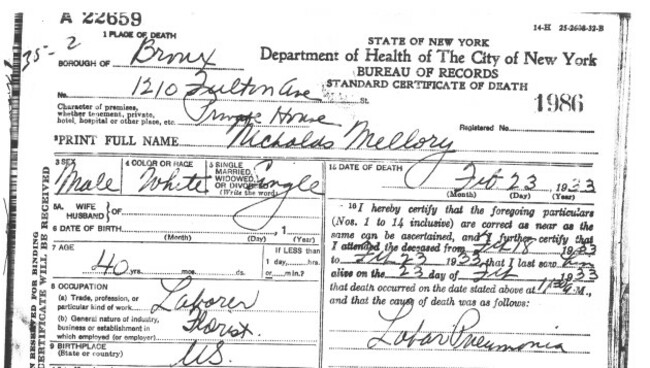 A 22659
14-H 25-2606-32-B
35-2
1 PLACE OF DEATH
STATE OF NEW YORK
BOROUGH OF Bronx
Department of Health of The City of New York
BUREAU OF RECORDS
No. 1210 Fulton Ave St.
STANDARD CERTIFICATE OF DEATH
Character of premises,
whether tenement, private,
hotel, hospital or other place, etc. Private House
1986
Registered No.
PRINT FULL NAME Nicholas Mellory
3 SEX Male
4 COLOR OR RACE White
5 SINGLE
MARRIED,
WIDOWED,
OR DIVORCED
(Write the word) Single
5A. WIFE
HUSBAND OF
6 DATE OF BIRTH , 1
(Month) (Day) (Year)
7 AGE
40 yrs. mos. ds.
IF LESS than
1 day, hrs.
or min.?
8 OCCUPATION
(a) Trade, profession, or
particular kind of work Laborer
(b) General nature of industry,
business or establishment in
which employed (or employer) Florist
9 BIRTHPLACE
(State or country) U.S.
15 DATE OF DEATH Feb 23 1933
(Month) (Day) (Year)
16 I hereby certify that the foregoing particulars
(Nos. 1 to 14 inclusive) are correct as near as the
same can be ascertained, and I further certify that
I attended the deceased from Feb 18 1933
to Feb 23 1933, that I last saw him
alive on the 23 day of Feb 1933
that death occurred on the date stated above at M.,
and that the cause of death was as follows:
Lobar Pneumonia
RESERVED FOR BINDING
CERTIFICATE WILL BE RECEIVED